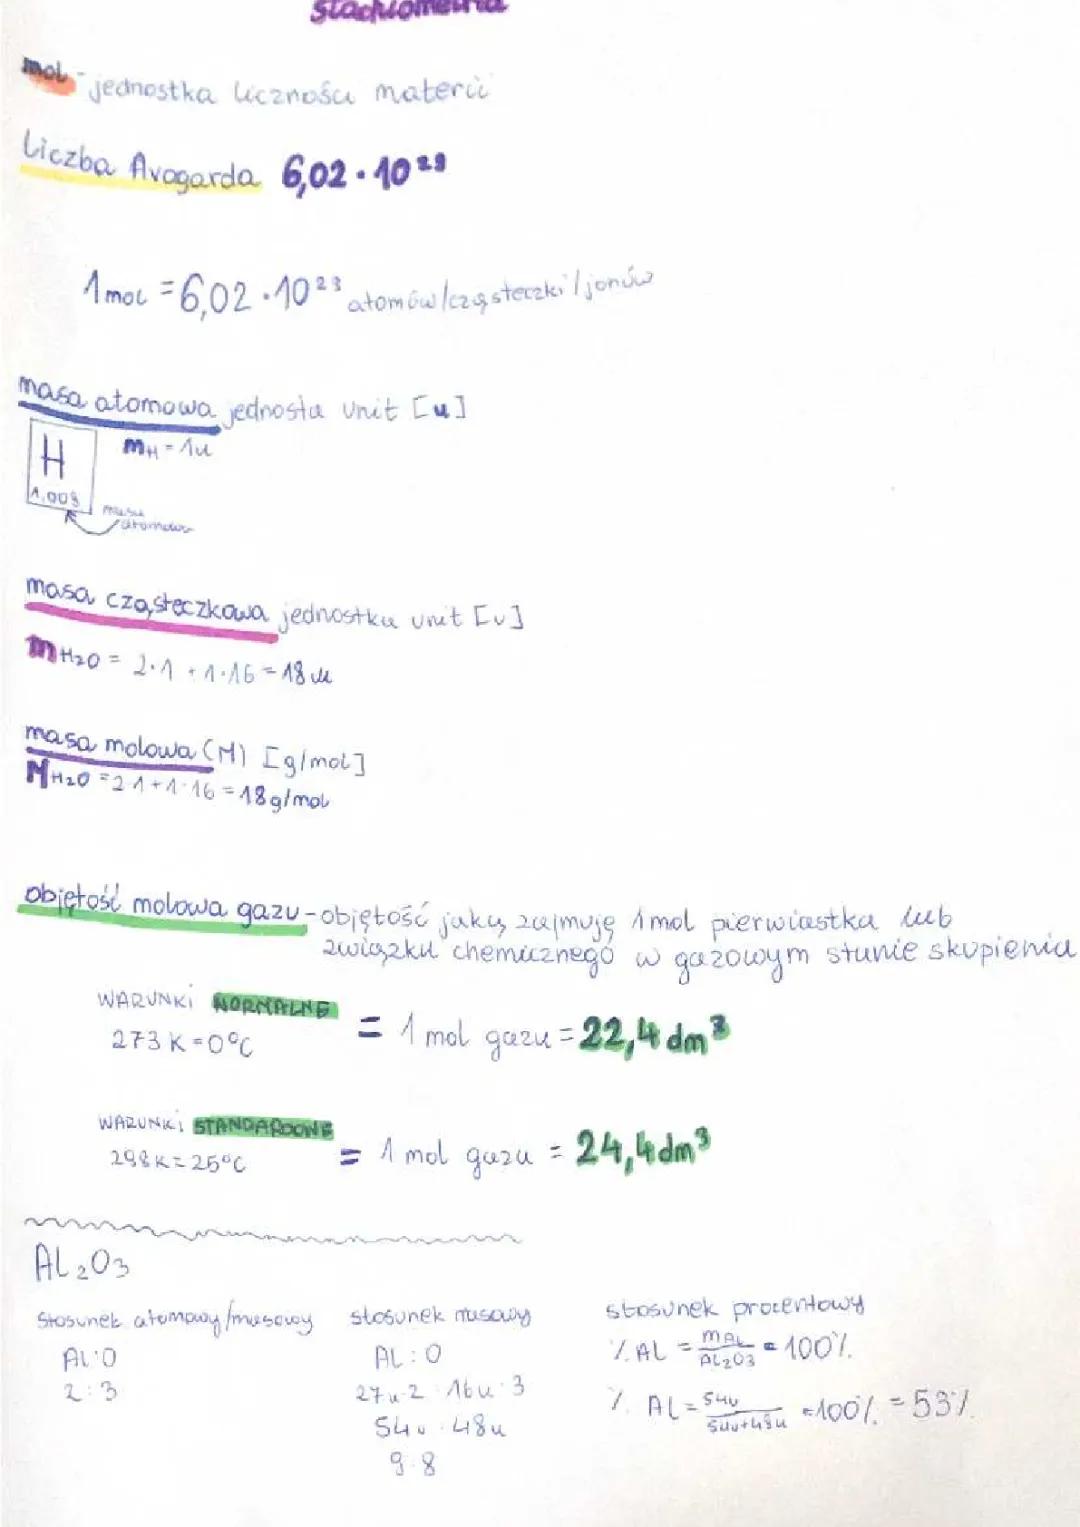 stechiometria
mol - jednostka liczności materii
Liczba Avogarda 6,02 · 10²³
1 mol = 6,02 · 10²³ atomów/cząsteczki/jonów
masa atomowa jednosta unit [u]
H
mH = 1u
1,008
masa
atomowa
masa cząsteczkowa jednostka unit [u]
mH₂O = 2·1 + 1·16 = 18 u
masa molowa (M) [g/mol]
MH₂O = 2·1 + 1·16 = 18 g/mol
objętość molowa gazu - objętość jaką zajmuję 1 mol pierwiastka lub
związku chemicznego w gazowym stanie skupienia
WARUNKI NORMALNE
273 K = 0°C
= 1 mol gazu = 22,4 dm³
WARUNKI STANDARDOWE
298 K = 25°C
= 1 mol gazu = 24,4 dm³
AL₂O₃
stosunek atomowy/masowy
AL:O
2:3
stosunek masowy
AL:O
27u·2 : 16u·3
54u : 48u
9:8
stosunek procentowy
% AL = mAL / AL₂O₃ = 100%
% AL = 54u / 54u+48u = 100% = 53%